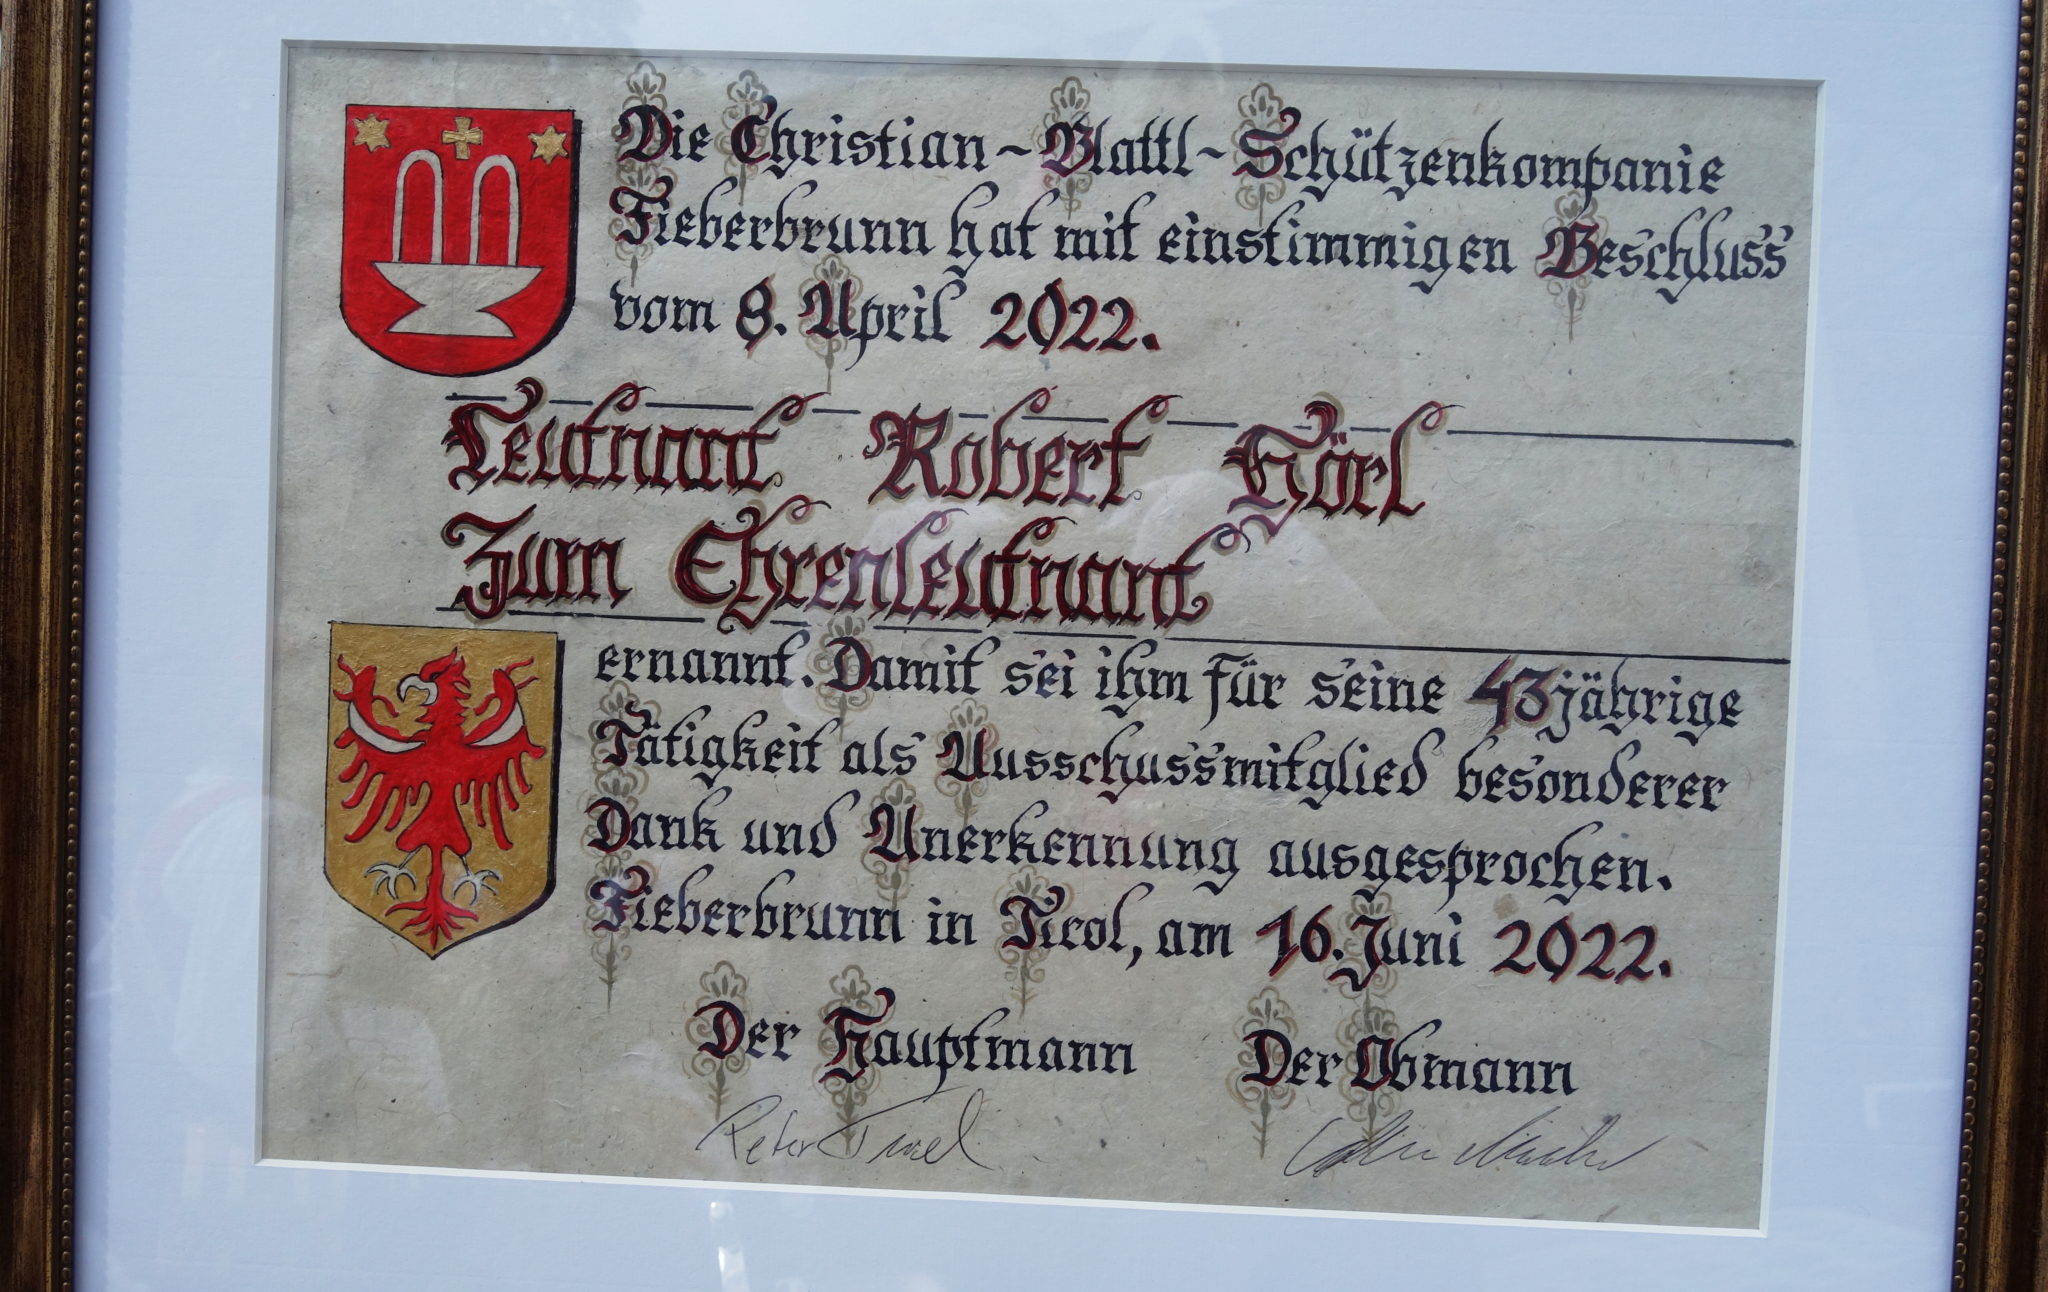 Die Christian-Blattl-Schützenkompanie
Fieberbrunn hat mit einstimmigen Beschluss
vom 8. April 2022.
Leutnant Robert Hörl
Zum Ehrenleutnant
ernannt. Damit sei ihm für seine 43jährige
Tätigkeit als Ausschussmitglied besonderer
Dank und Anerkennung ausgesprochen.
Fieberbrunn in Tirol, am 16. Juni 2022.
Der Hauptmann Der Obmann
Peter